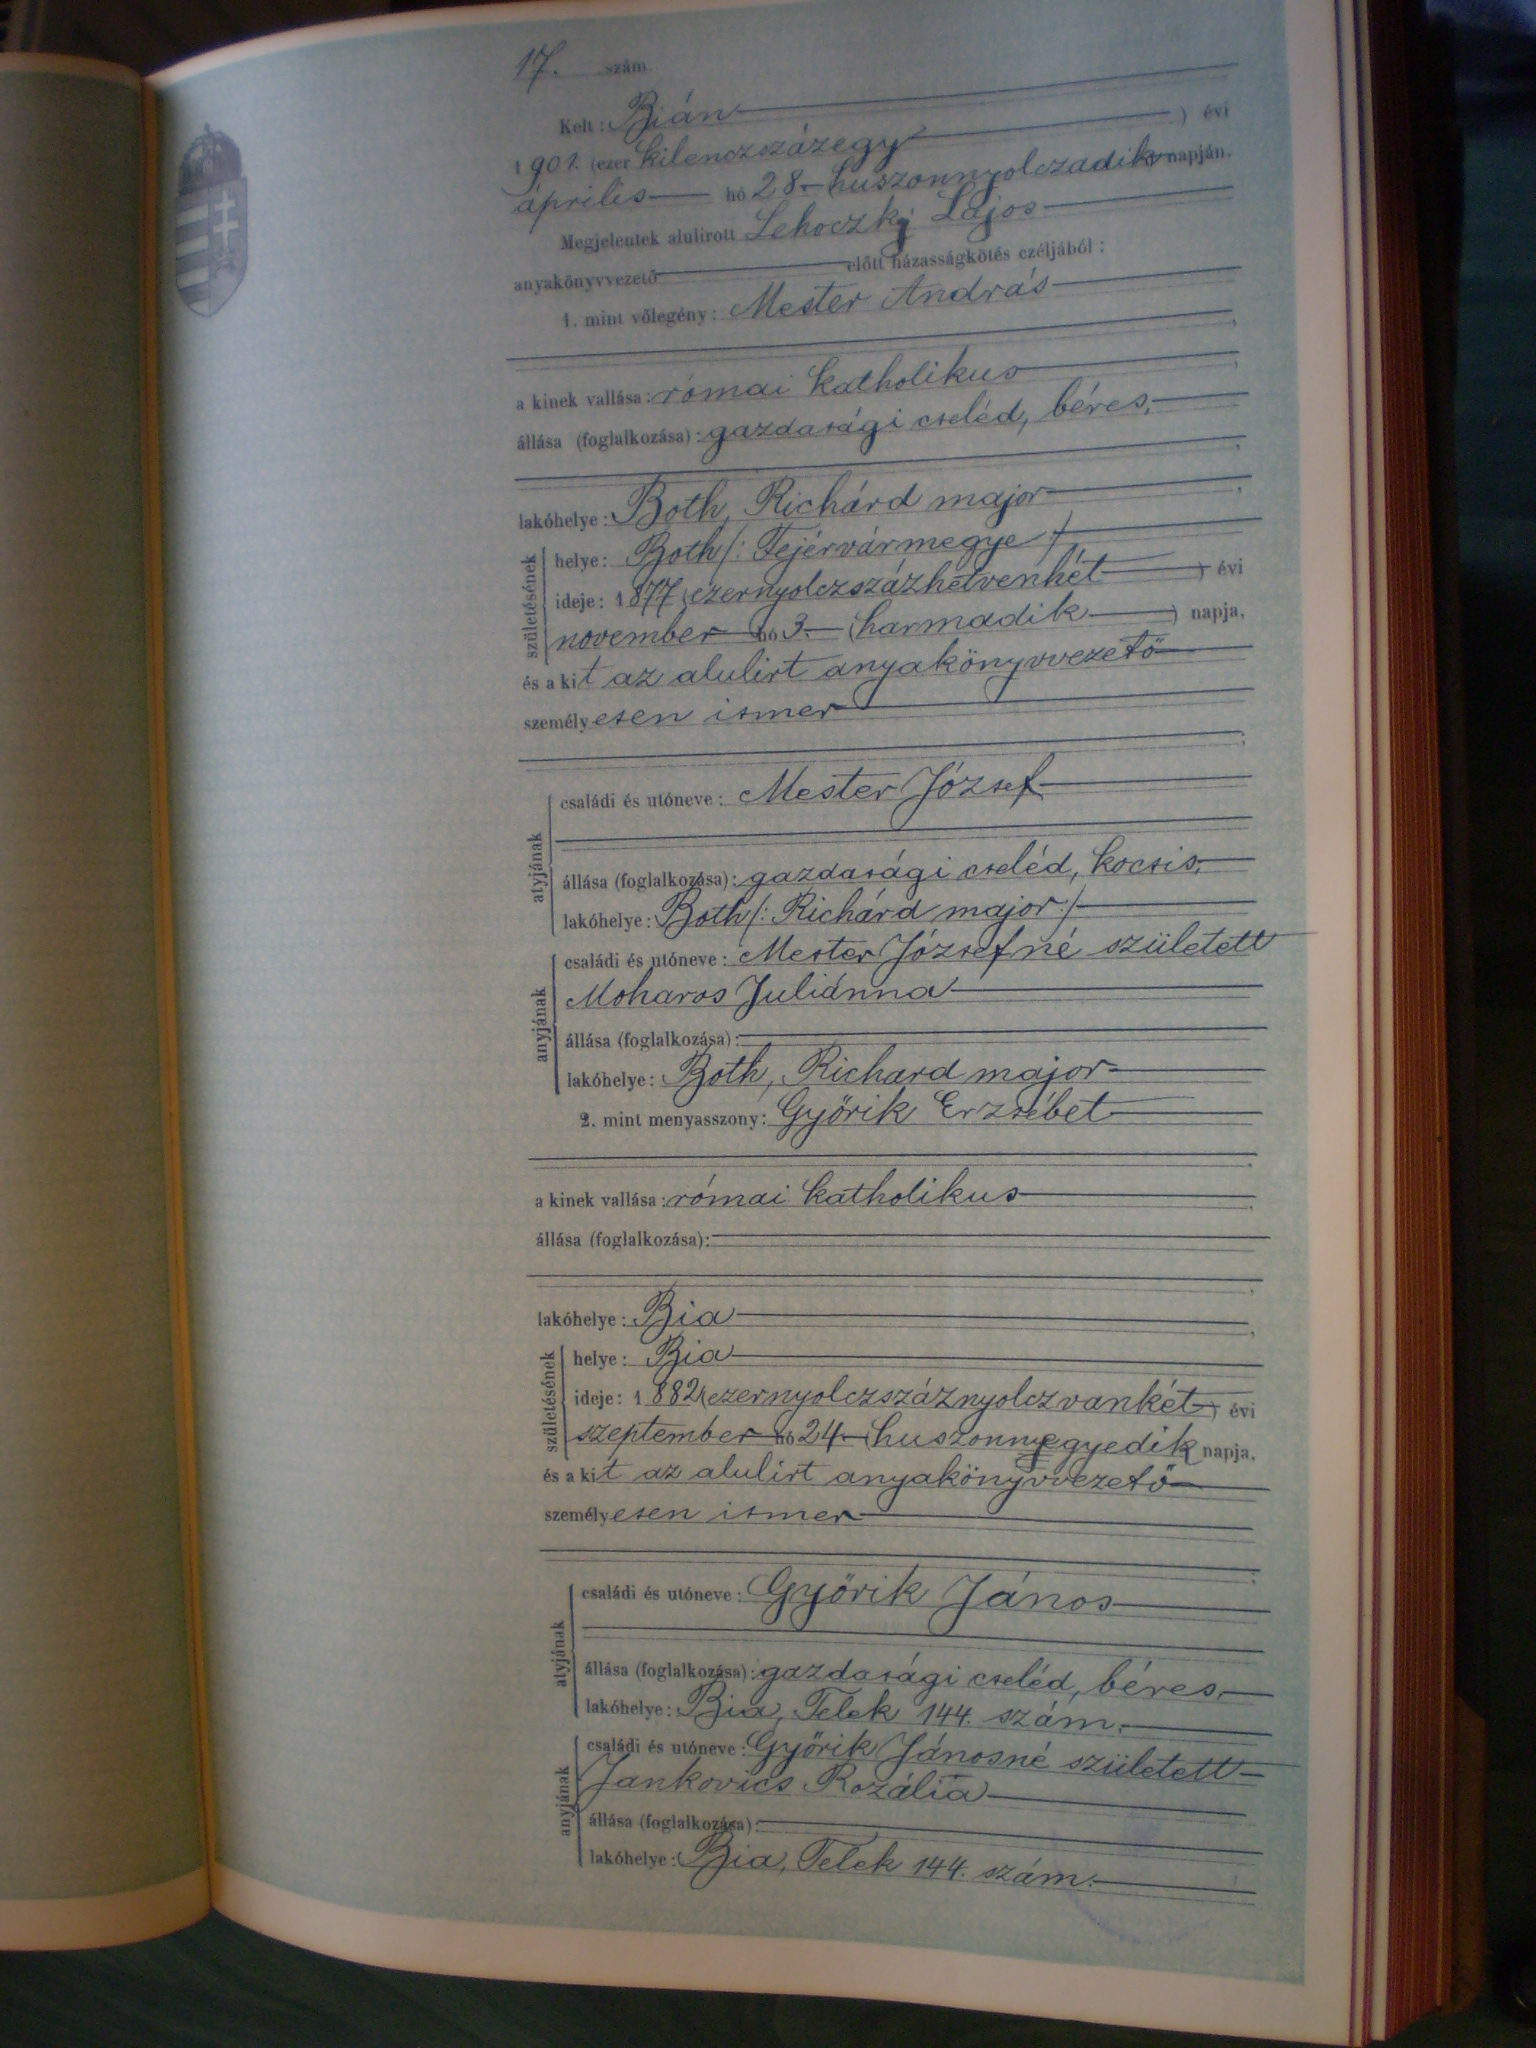 17. szám
Kelt: Bián ) évi
1901. (ezer kilenczszázegy
április hó 28. (huszonnyolczadik napján.
Megjelentek alulirott Lehoczky Lajos
anyakönyvvezető előtt házasságkötés czéljából:
1. mint vőlegény: Mester András
a kinek vallása: római katholikus
állása (foglalkozása): gazdasági cseléd, béres,
lakóhelye: Both, Richárd major
születésének
helye: Both /: Fejérvármegye :/
ideje: 1877 (ezernyolczszázhetvenhét ) évi
november hó 3. (harmadik ) napja,
és a kit az alulirt anyakönyvvezető
személyesen ismer
atyjának
családi és utóneve: Mester József
állása (foglalkozása): gazdasági cseléd, kocsis,
lakóhelye: Both /: Richárd major :/
anyjának
családi és utóneve: Mester Józsefné született
Moharos Juliánna
állása (foglalkozása):
lakóhelye: Both, Richard major
2. mint menyasszony: Győrik Erzsébet
a kinek vallása: római katholikus
állása (foglalkozása):
lakóhelye: Bia
születésének
helye: Bia
ideje: 1882 (ezernyolczszáznyolczvankét ) évi
szeptember hó 24. (huszonnegyedik napja,
és a kit az alulirt anyakönyvvezető
személyesen ismer
atyjának
családi és utóneve: Győrik János
állása (foglalkozása): gazdasági cseléd, béres,
lakóhelye: Bia, Telek 144. szám.
anyjának
családi és utóneve: Győrik Jánosné született
Jankovics Rozália
állása (foglalkozása):
lakóhelye: Bia, Telek 144. szám.